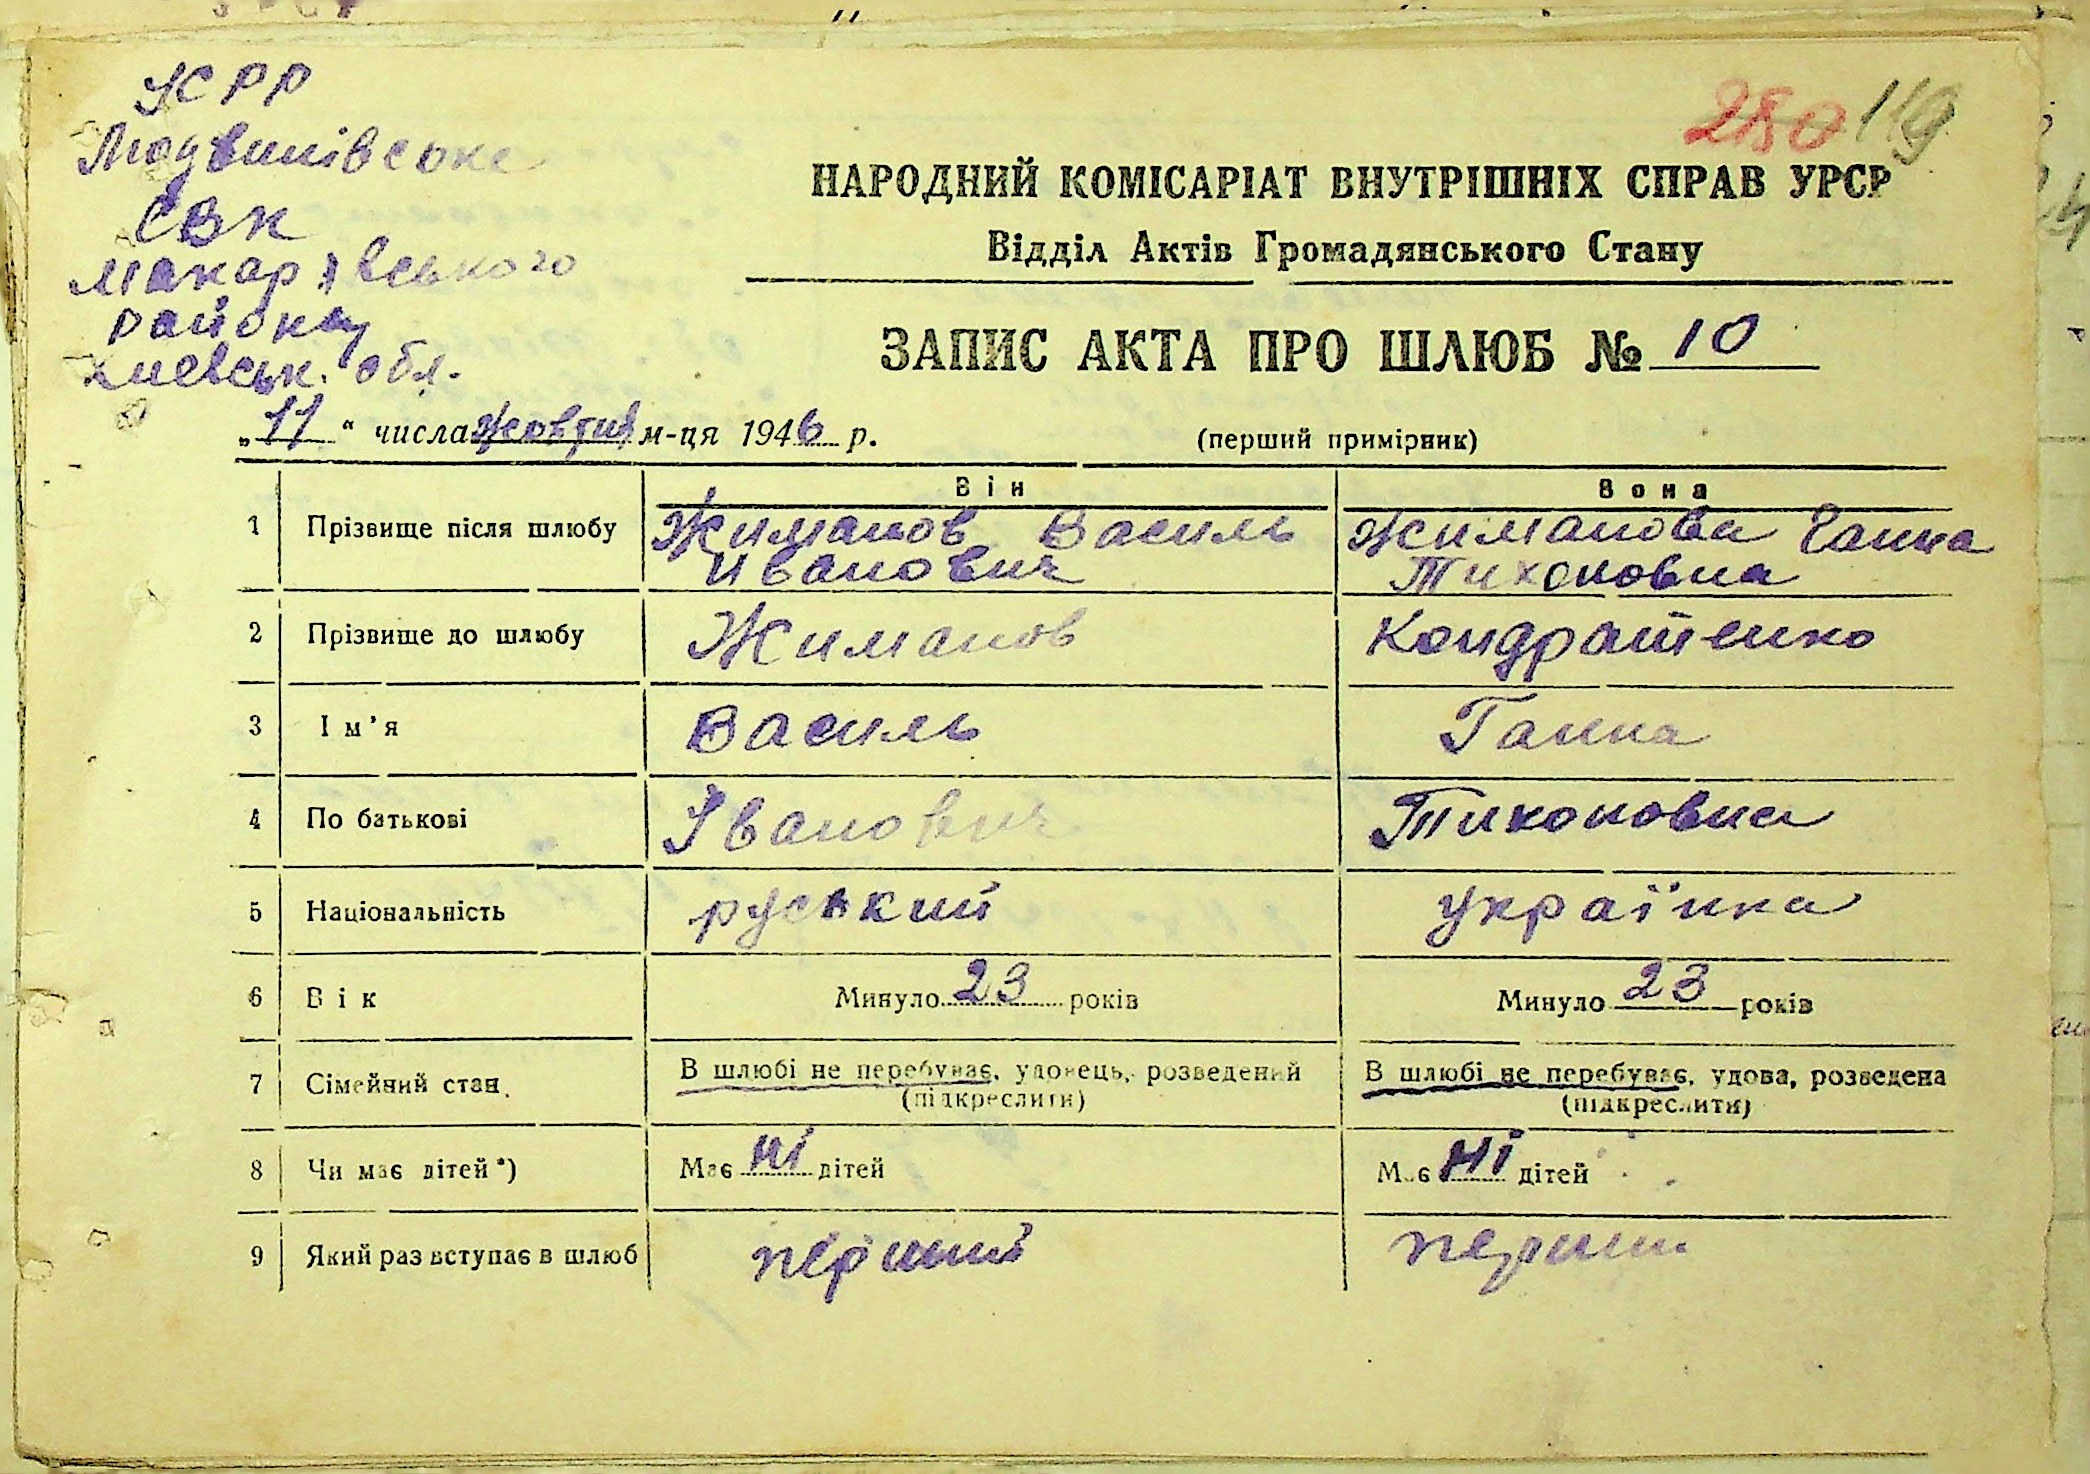 УСРР
280 119
Людвинівське
СВК
Макарівського
району
Києвськ. обл.
НАРОДНИЙ КОМІСАРІАТ ВНУТРІШНІХ СПРАВ УРСР
Відділ Актів Громадянського Стану
ЗАПИС АКТА ПРО ШЛЮБ № 10
„11“ числа жовтня м-ця 1946 р. (перший примірник)
Він Вона
1 Прізвище після шлюбу Жиманов Василь Жиманова Ганна
Иванович Тихоновна
2 Прізвище до шлюбу Жиманов Кондратенко
3 Ім’я Василь Ганна
4 По батькові Іванович Тихоновна
5 Національність руський українка
6 Вік Минуло 23 років Минуло 23 років
7 Сімейний стан В шлюбі не перебуває, удовець, розведений В шлюбі не перебуває, удова, розведена
(підкреслити) (підкреслити)
8 Чи має дітей*) Має ні дітей Має ні дітей
9 Який раз вступає в шлюб перший перший